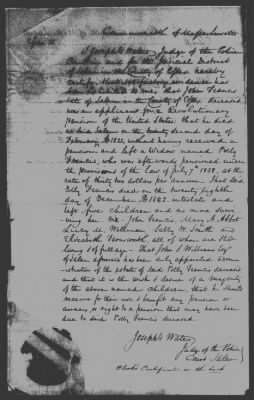 Commonwealth of Massachusetts
Essex SS.
I Joseph G Waters Judge of the Police
Court in and for the Judicial District
of Salem in the County of Essex hereby
certify that satisfactory evidence has
been exhibited to me, that John Francis
late of Salem in the County of Essex deceased
was a applicant for a Revolutionary
pension of the United States: that he died
at said Salem on the twenty second day of
February A.D. 1833, without having received a
pension and left a Widow named Polly
Francis, who was afterwards pensioned under
the provisions of the Law of July 7th 1838, at the
rate of thirty two dollars per annum. That said
Polly Francis died on the twenty eighth
day of December A.D. 1842, intestate and
left five children and no more surviving
her viz John Francis, Mary A. Abbot
Lucy M. Wellman, Sally W. Smith and
Elizabeth all of whom are still
living & of full age. That John S Williams Esq
of Salem aforesaid has been duly appointed administrator
of the estate of said Polly Francis deceased
and that it is the wish & desire of a majority
of the above named children, that he should
receive for their use & benefit any pension or
arrears, or right to a pension that may have been
due to said Polly Francis deceased
Joseph G Waters
Judge of the Police
Court Salem
Clerks Certificate on the back